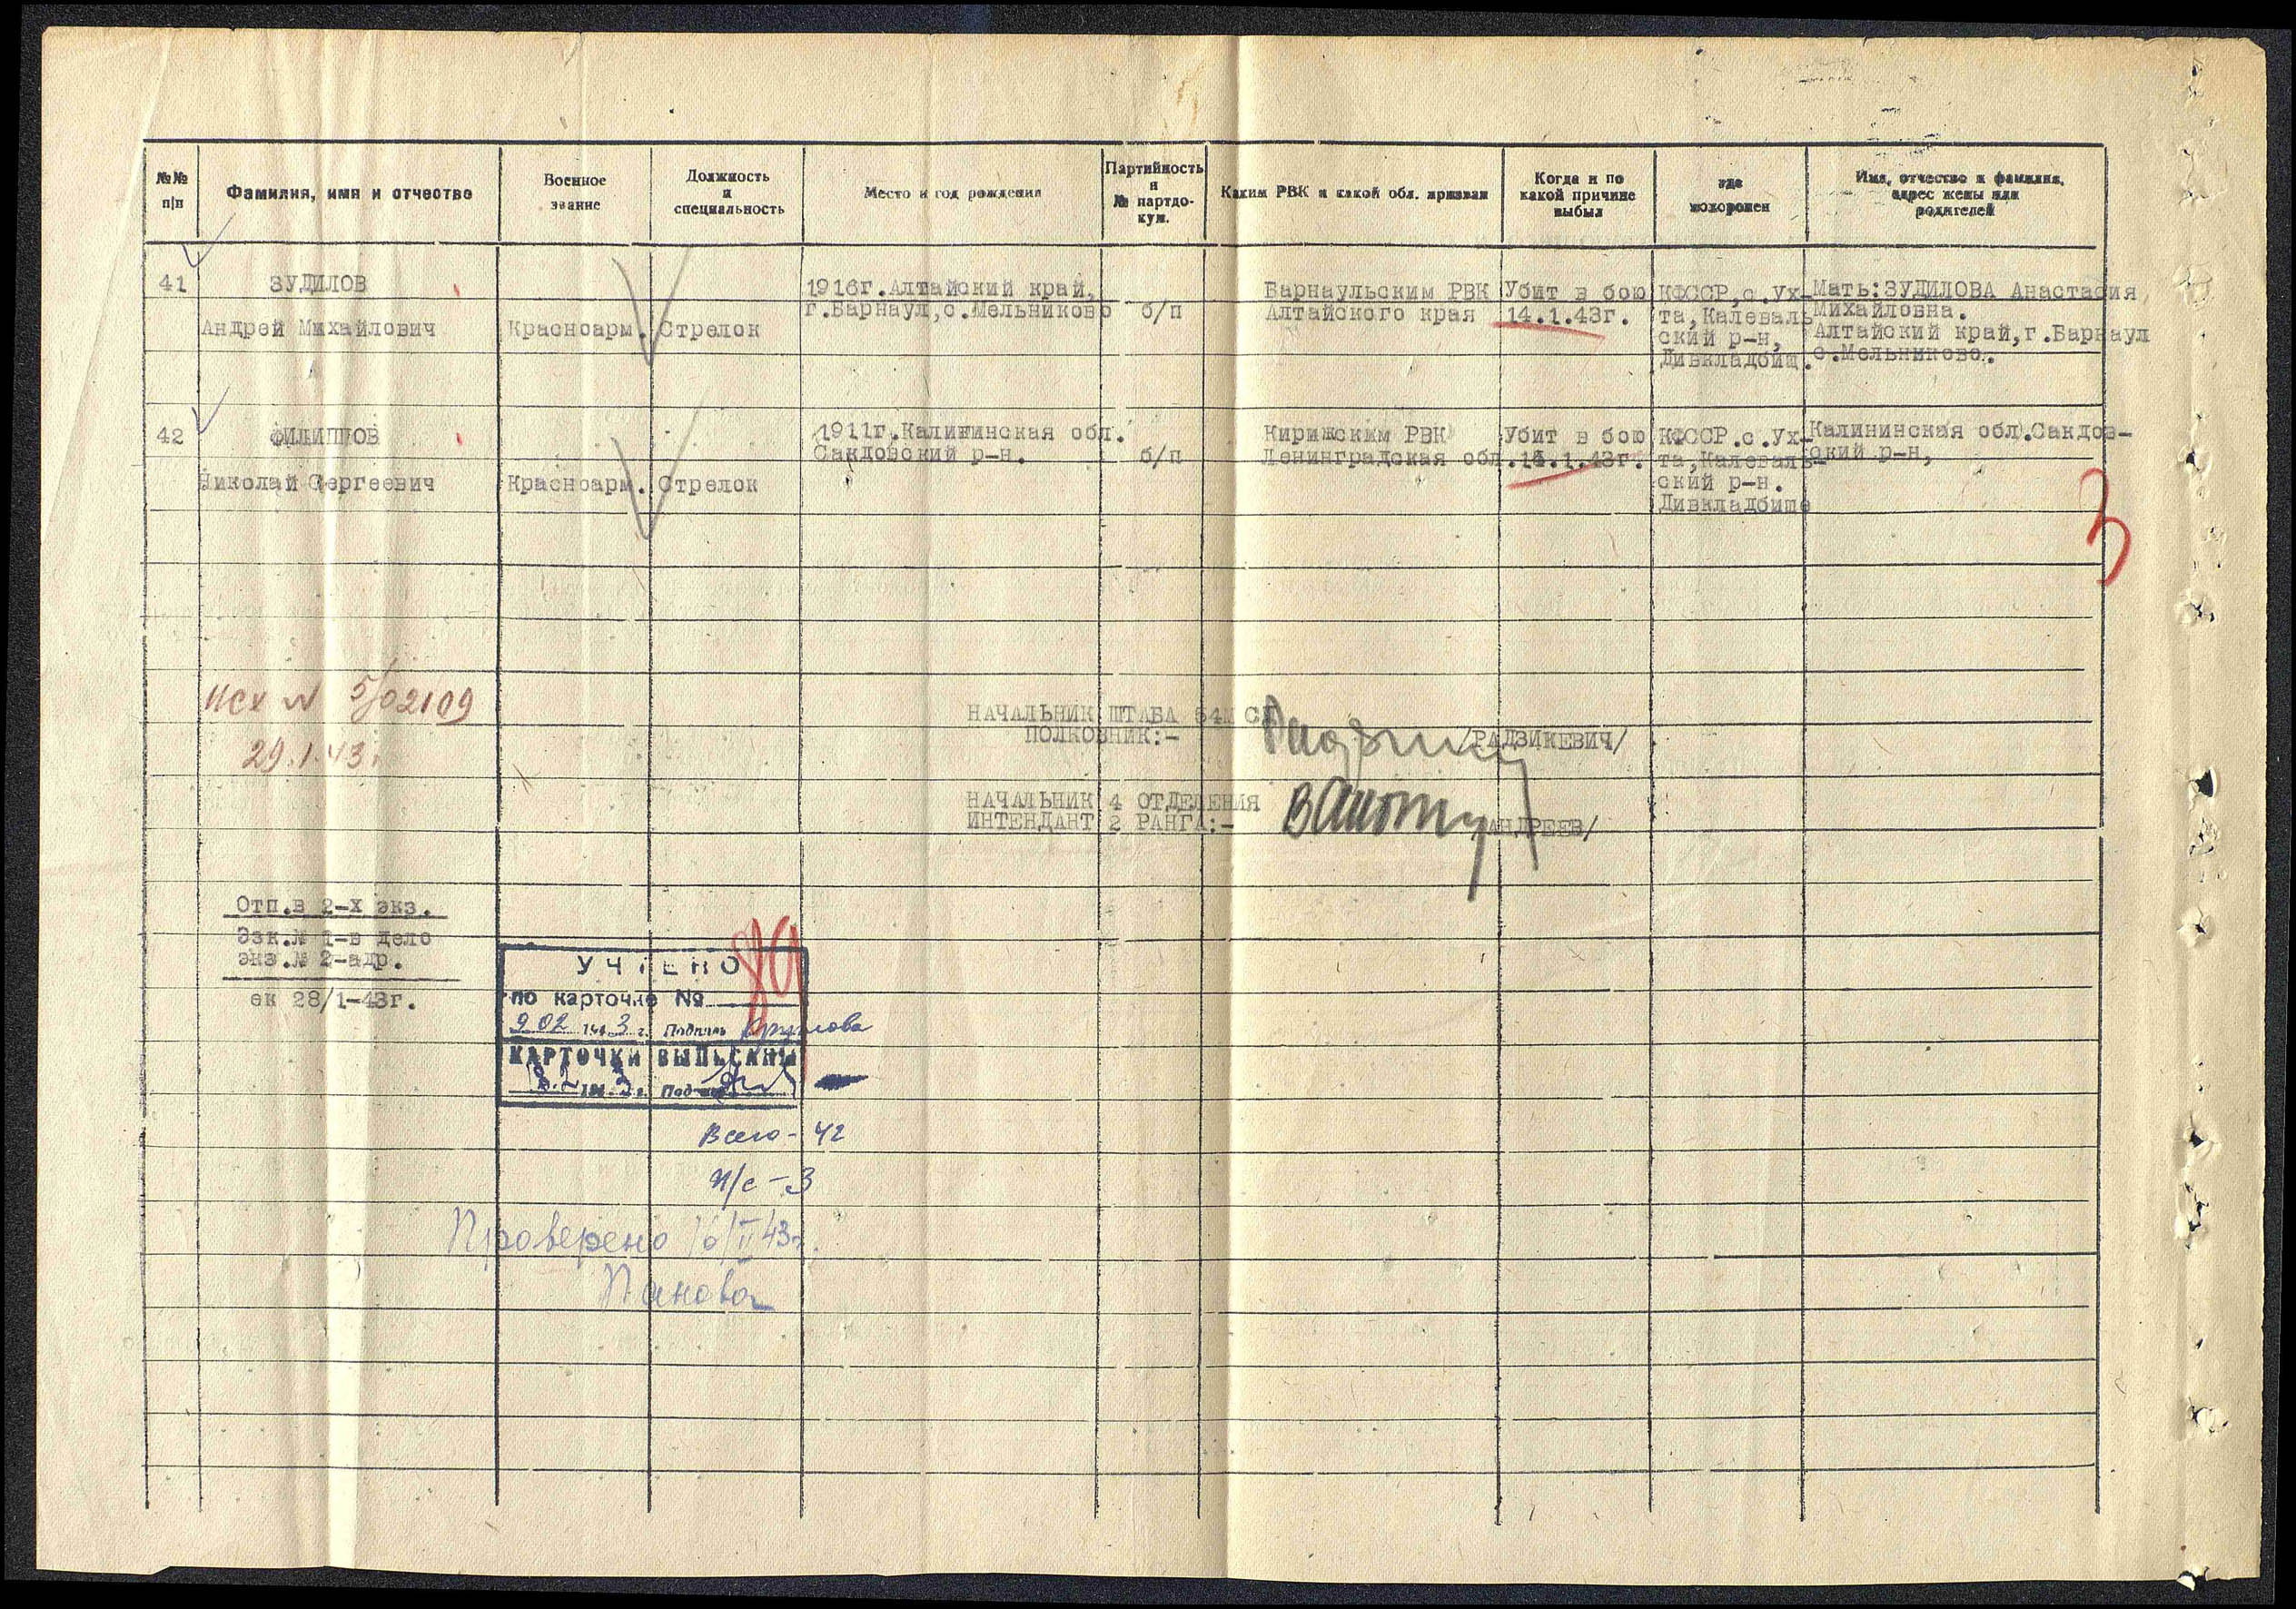 №№ п|п
Фамилия, имя и отчество
Военное звание
Должность и специальность
Место и год рождения
Партийность и № партдо-кум.
Каким РВК и какой обл. призван
Когда и по какой причине выбыл
где похоронен
Имя, отчество и фамилия, адрес жены или родителей
41
ЗУДИЛОВ
Андрей Михайлович
Красноарм.
Стрелок
1916г.Алтайский край,
г.Барнаул,с.Мельниково
б/п
Барнаульским РВК
Алтайского края
Убит в бою
14.1.43г.
КФССР,с.Ух-
та,Калеваль
ский р-н,
Дивкладбищ.
Мать:ЗУДИЛОВА Анастасия
Михайловна.
Алтайский край,г.Барнаул
с.Мельниково.
42
ФИЛИППОВ
Николай Сергеевич
Красноарм.
Стрелок
1911г.Калининская обл.
Сандовский р-н.
б/п
Киришским РВК
Ленинградская обл.
Убит в бою
14.1.43г.
КФССР.с.Ух-
та,Калеваль-
ский р-н.
Дивкладбище
Калининская обл.Сандов-
ский р-н,
3
Исх № 5/02109
29.1.43г
НАЧАЛЬНИК ШТАБА 54й СД
ПОЛКОВНИК:-
/РАДЗИКЕВИЧ/
НАЧАЛЬНИК 4 ОТДЕЛЕНИЯ
ИНТЕНДАНТ 2 РАНГА:-
/АНДРЕЕВ/
Отп.в 2-х экз.
Экз.№ 1-в дело
экз.№ 2-адр.
ек 28/1-43г.
УЧТЕНО
по карточке №
9 02 194 3 г. Подпись
КАРТОЧКИ ВЫПИСАНЫ
194 3 г. Подпись
Всего - 42
н/с - 3
Проверено 16/II 43г.
Панова